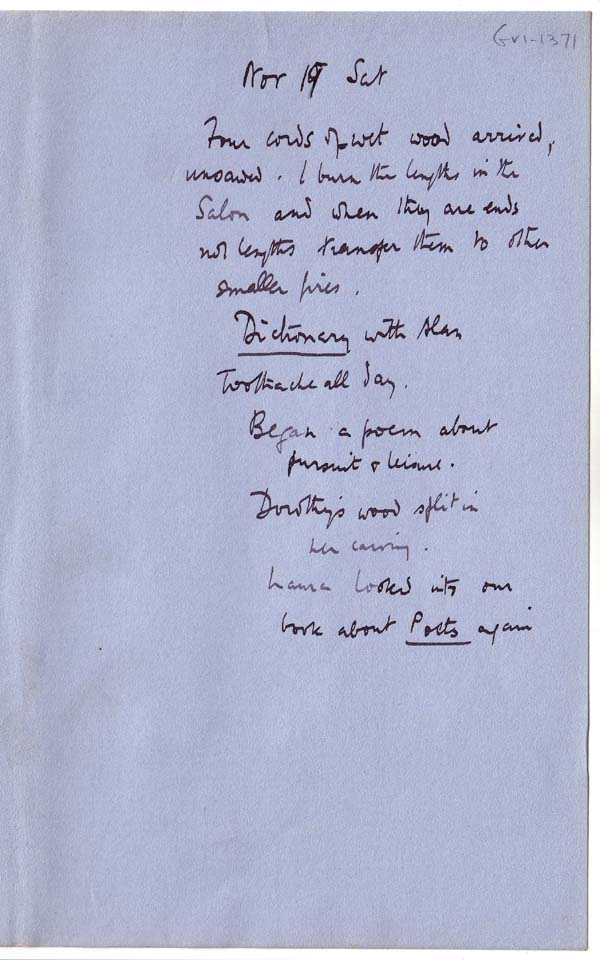 GV1-1371
Nov 19 Sat
Four cords of wet wood arrived,
unsawed. I burn the lengths in the
Salon and when they are ends
not lengths transfer them to other
smaller fires.
Dictionary with Alan
Toothache all day.
Began a poem about
pursuit & leisure.
Dorothy's wood split in
her carving.
Laura looked into our
book about Poets again